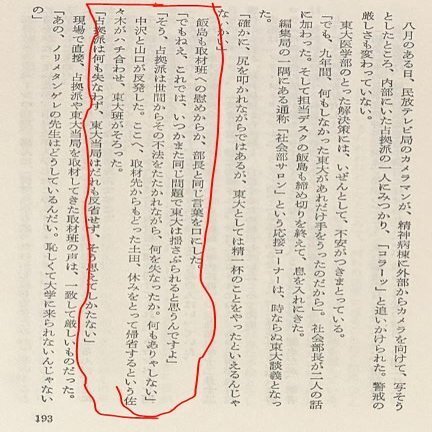 八月のある日、民放テレビ局のカメラマンが、精神病棟に外部からカメラを向けて、写そう
としたところ、内部にいた占拠派の一人にみつかり、「コラーッ」と追いかけられた。警戒の
厳しさも変わっていない。
東大医学部のとった解決策には、いぜんとして、不安がつきまとっている。
「でも、九年間、何もしなかった東大があれだけ手をうったのだから」。社会部長が二人の話
に加わった。そして担当デスクの飯島も締め切りを終えて、息を入れにきた。
編集局の一隅にある通称「社会部サロン」という応接コーナーは、時ならぬ東大談義となっ
た。
「確かに、尻を叩かれながらではあるが、東大としては精一杯のことをやったといえるんじゃ
ないかい」
飯島も取材班への慰めからか、部長と同じ言葉を口にした。
「でもねえ、これでは、いつかまた同じ問題で東大は揺さぶられると思うんですよ」
「そう、占拠派は世間からその不法をたたかれながら、何を失なったか。何もありゃしない」
中沢と山口が反発した。ここへ、取材先からもどった土田、休みをとって帰省するという佐
々木がハチ合わせ、東大班がそろった。
「占拠派は何も失なわず、東大当局はだれも反省せず、そう思えてしかたがない」
現場で直接、占拠派や東大当局を取材してきた取材班の声は、一致して厳しいものだった。
「あの、ノリメタンゲレの先生はどうしているんだい。恥しくて大学に来られないんじゃない
の」
193